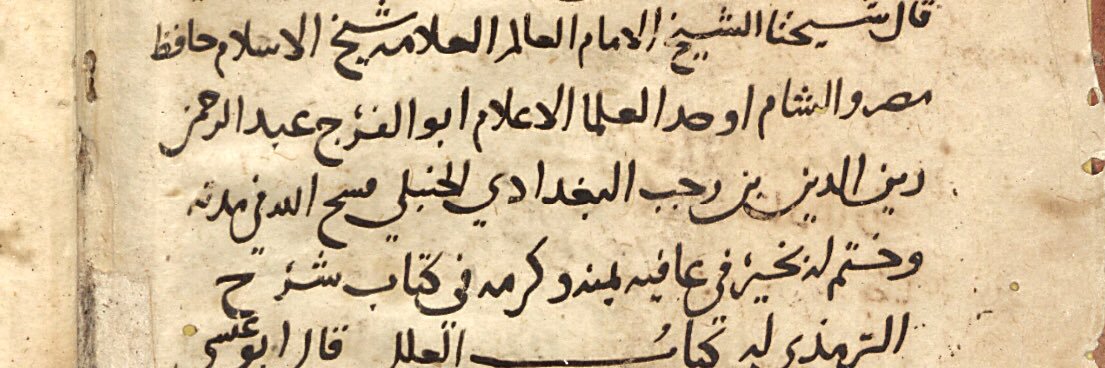 قال شيخنا الشيخ الامام العالم العلامه شيخ الاسلام حافظ
مصر والشام اوحد العلما الاعلام ابو الفرج عبد الرحمن
زين الدين بن رجب البغدادي الحنبلي فسح الله في مدته
وختم له بخير في عافيه بمنه وكرمه في كتاب شرح
الترمذي له كتاب العلل قال ابو عيسى